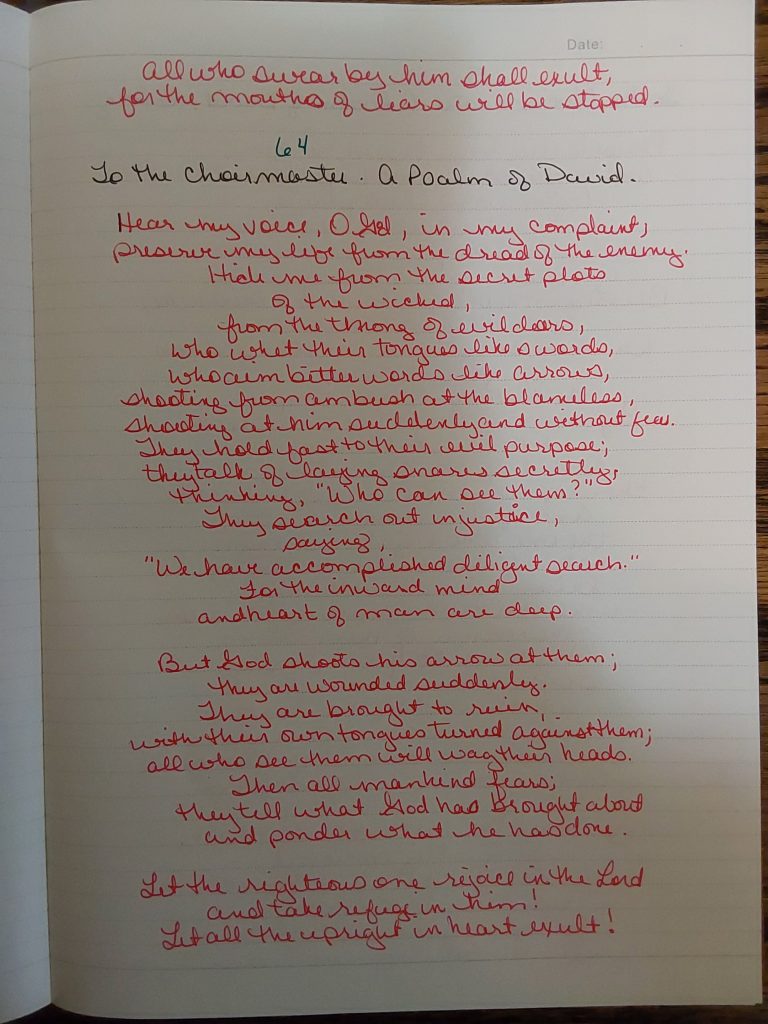 Date:
all who swear by him shall exult,
for the mouths of liars will be stopped.
64
To the choirmaster. A Psalm of David.
Hear my voice, O God, in my complaint;
preserve my life from the dread of the enemy.
Hide me from the secret plots
of the wicked,
from the throng of evildoers,
who whet their tongues like swords,
who aim bitter words like arrows,
shooting from ambush at the blameless,
shooting at him suddenly and without fear.
They hold fast to their evil purpose;
they talk of laying snares secretly,
thinking, "Who can see them?"
They search out injustice,
saying,
"We have accomplished diligent search."
For the inward mind
and heart of man are deep.
But God shoots his arrow at them;
they are wounded suddenly.
They are brought to ruin,
with their own tongues turned against them;
all who see them will wag their heads.
Then all mankind fears;
they tell what God has brought about
and ponder what he has done.
Let the righteous one rejoice in the Lord
and take refuge in him!
Let all the upright in heart exult!